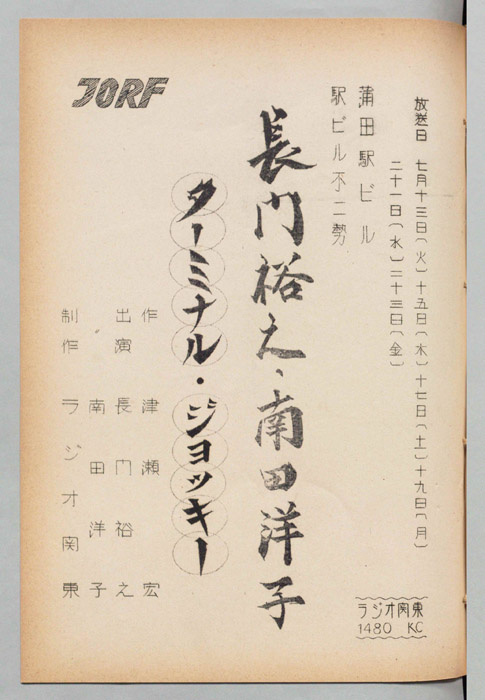 放送日 七月十三日(火)十五日(木)十七日(土)十九日(月)
二十一日(水)二十三日(金)
蒲田駅ビル
駅ビル不二勢
長門裕之、南田洋子
ターミナル・ジョッキー
作 津瀬宏
出演 長門裕之
南田洋子
制作 ラジオ関東
JORF
ラジオ関東
1480 KC